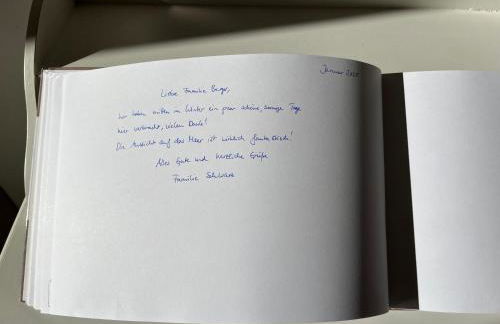 Januar 2025
Liebe Familie Berger,
wir haben mitten im Winter ein paar schöne, sonnige Tage
hier verbracht, vielen Dank!
Die Aussicht auf das Meer ist wirklich fantastisch!
Alles Gute und herzliche Grüße
Familie Schwarz